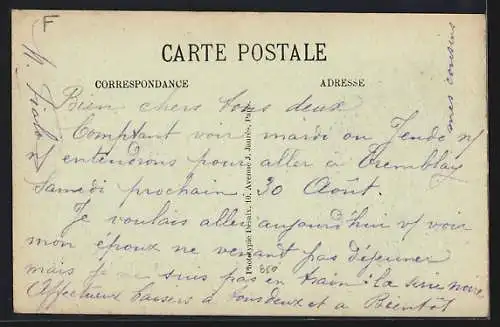 F
CARTE POSTALE
CORRESPONDANCE
ADRESSE
Bien chers tous deux
Comptant voir mardi ou Jeudi n/
n/ entendrons pour aller à Tremblay
Samedi prochain 30 Août.
Je voulais aller aujourd'hui v/ voir
mon époux ne venant pas déjeuner
mais je ne suis pas en train : la
Affectueux baisers à tous deux et à Bientôt
mes cousins
Phototypie Desaix, 10, Avenue J. Jaurès, Paris